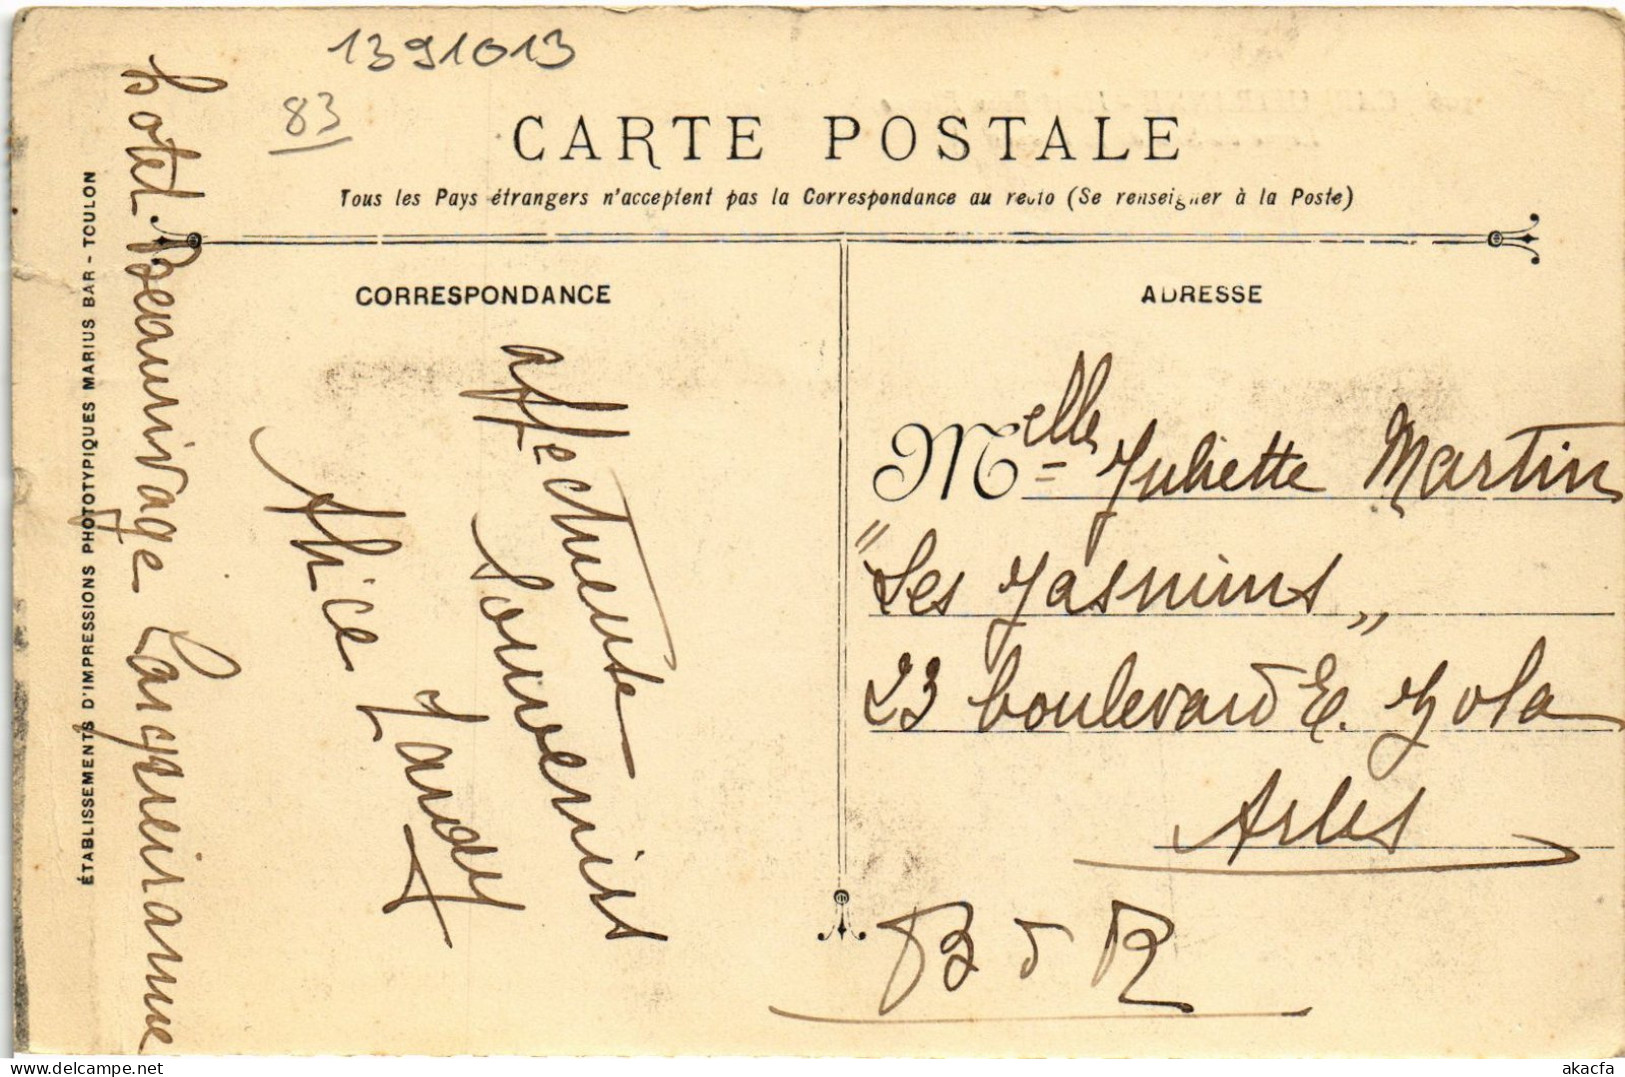 1391013
83
CARTE POSTALE
Tous les Pays étrangers n'acceptent pas la Correspondance au recto (Se renseigner à la Poste)
CORRESPONDANCE
ADRESSE
ÉTABLISSEMENTS D'IMPRESSIONS PHOTOTYPIQUES MARIUS BAR - TOULON
hotel Beaurivage Carqueiranne
affectueux
souvenirs
Alice
Melle Juliette Martin
"Les Jasmins"
23 boulevard E. Zola
Arles
B d R
akacfa